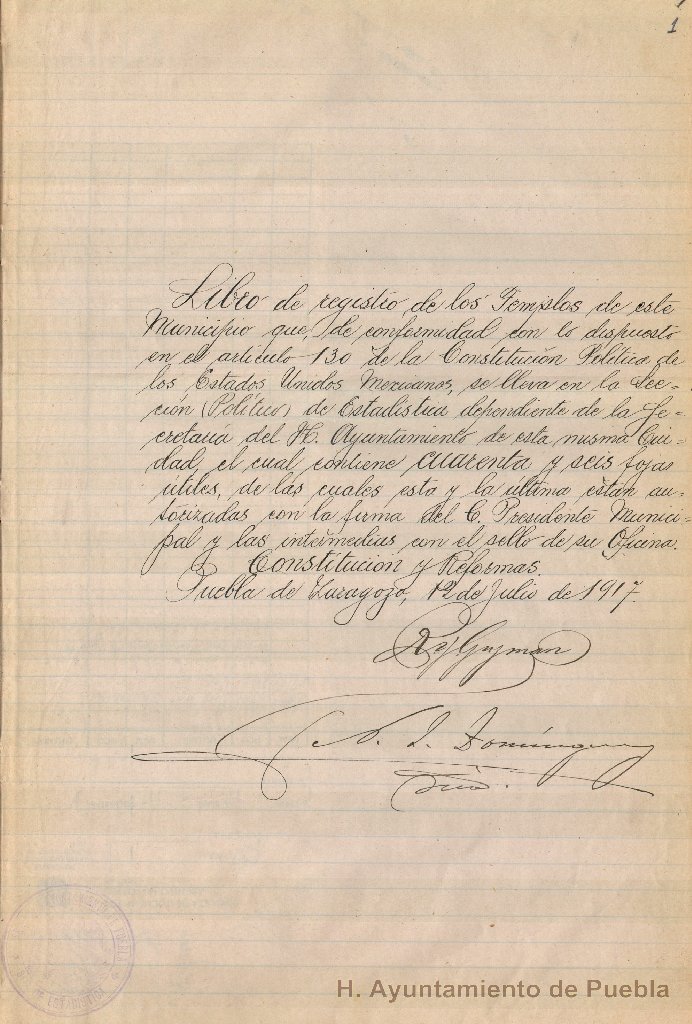 1
Libro de registro de los Templos de este
Municipio que, de conformidad con lo dispuesto
en el artículo 130 de la Constitución Política de
los Estados Unidos Mexicanos, se lleva en la Sec-
ción (Político) de Estadística dependiente de la Se-
cretaría del H. Ayuntamiento de esta misma Ciu-
dad, el cual contiene cuarenta y seis fojas
útiles, de las cuales esta y la última están au-
torizadas con la firma del C. Presidente Munici-
pal y las intermedias con el sello de su Oficina.
Constitución y Reformas.
Puebla de Zaragoza, 12 de Julio de 1917.
Guzman
N. I. Domínguez
Srio.
H. Ayuntamiento de Puebla